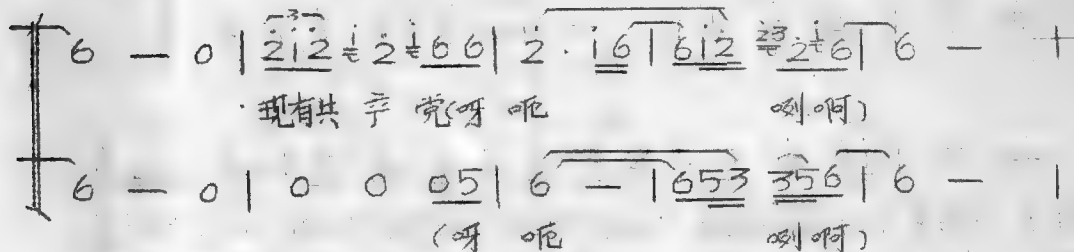 6 — 0 | 2̇1̇2̇ 1̇ 2̇ 1̇ 6 6 | 2̇ · 1̇6 | 61̇2̇ 2̇3̇ 2̇ 1̇ 6 | 6 — |
现有共产党(呀 呃 咧啊)
6 — 0 | 0 0 05 | 6 — | 653 356 | 6 — |
(呀 呃 咧啊)